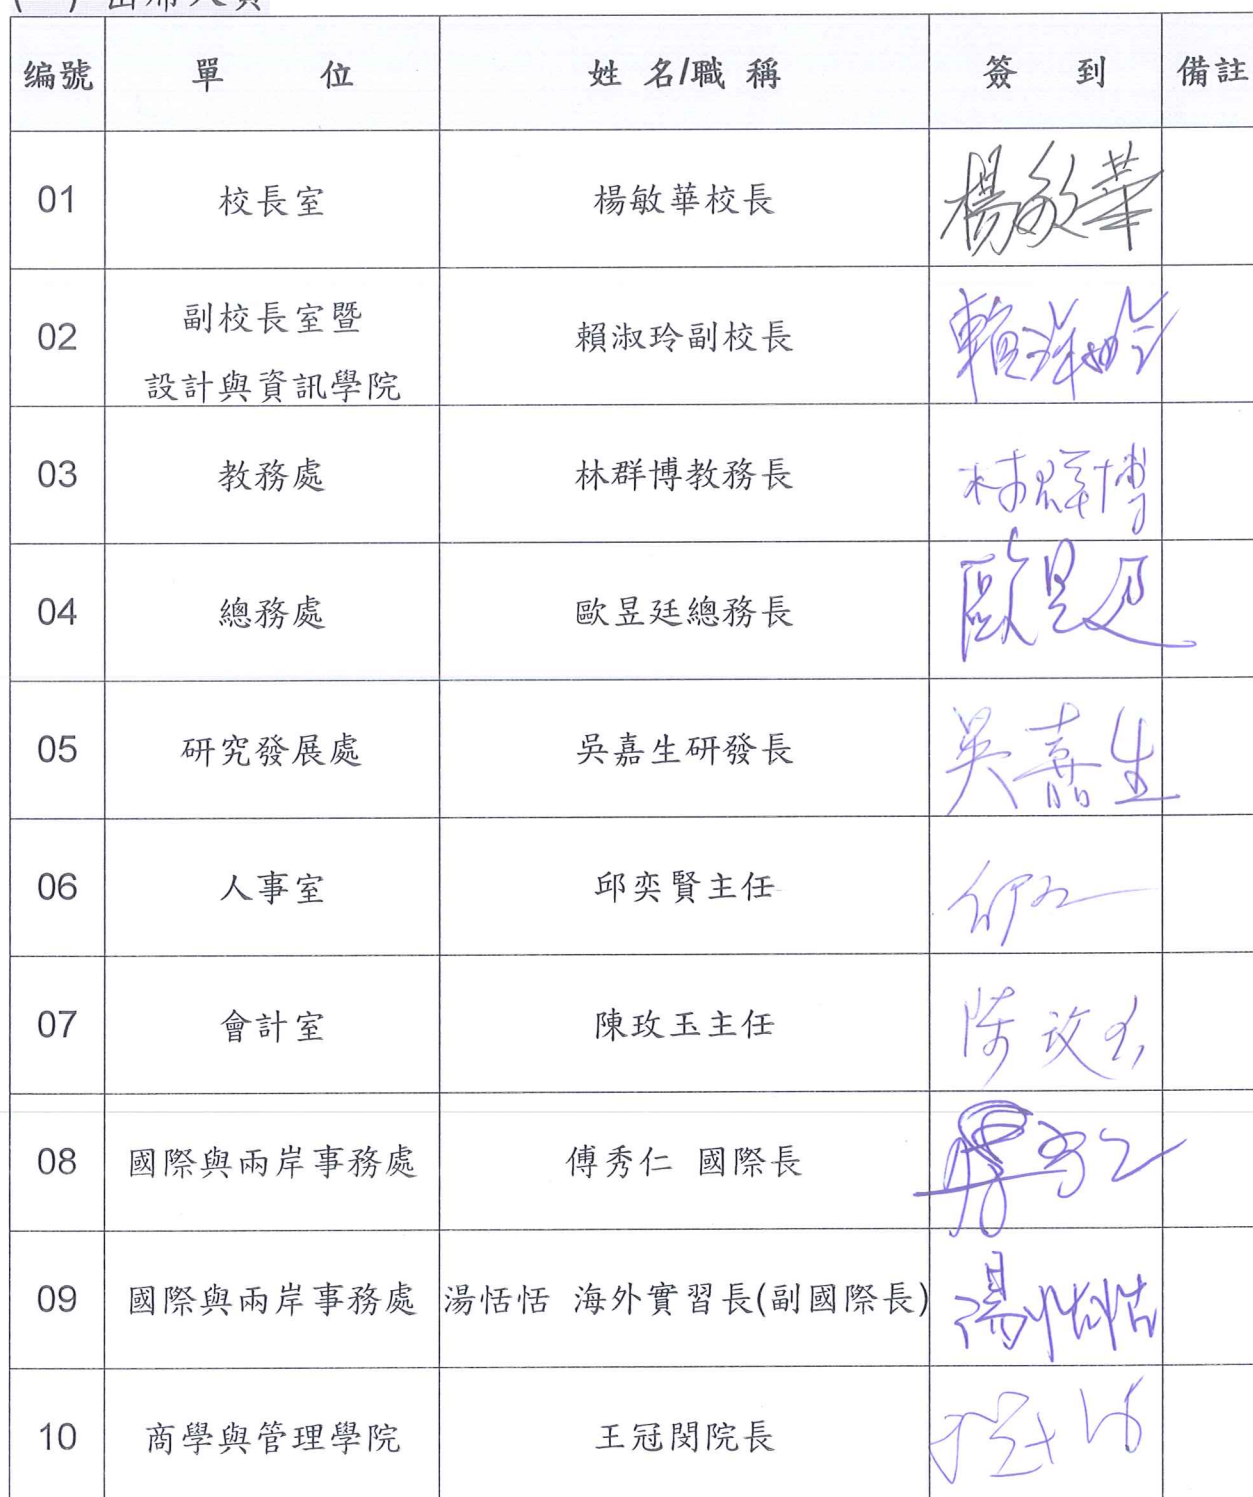 出席人員
编號 單 位 姓 名/職 稱 簽 到 備註
01 校長室 楊敏華校長 楊敏華
02 副校長室暨 賴淑玲副校長 賴淑玲
設計與資訊學院
03 教務處 林群博教務長 林群博
04 總務處 歐昱廷總務長 歐昱廷
05 研究發展處 吳嘉生研發長 吳嘉生
06 人事室 邱奕賢主任
07 會計室 陳玫玉主任 陳玫玉
08 國際與兩岸事務處 傅秀仁 國際長 傅秀仁
09 國際與兩岸事務處 湯恬恬 海外實習長(副國際長) 湯恬恬
10 商學與管理學院 王冠閔院長